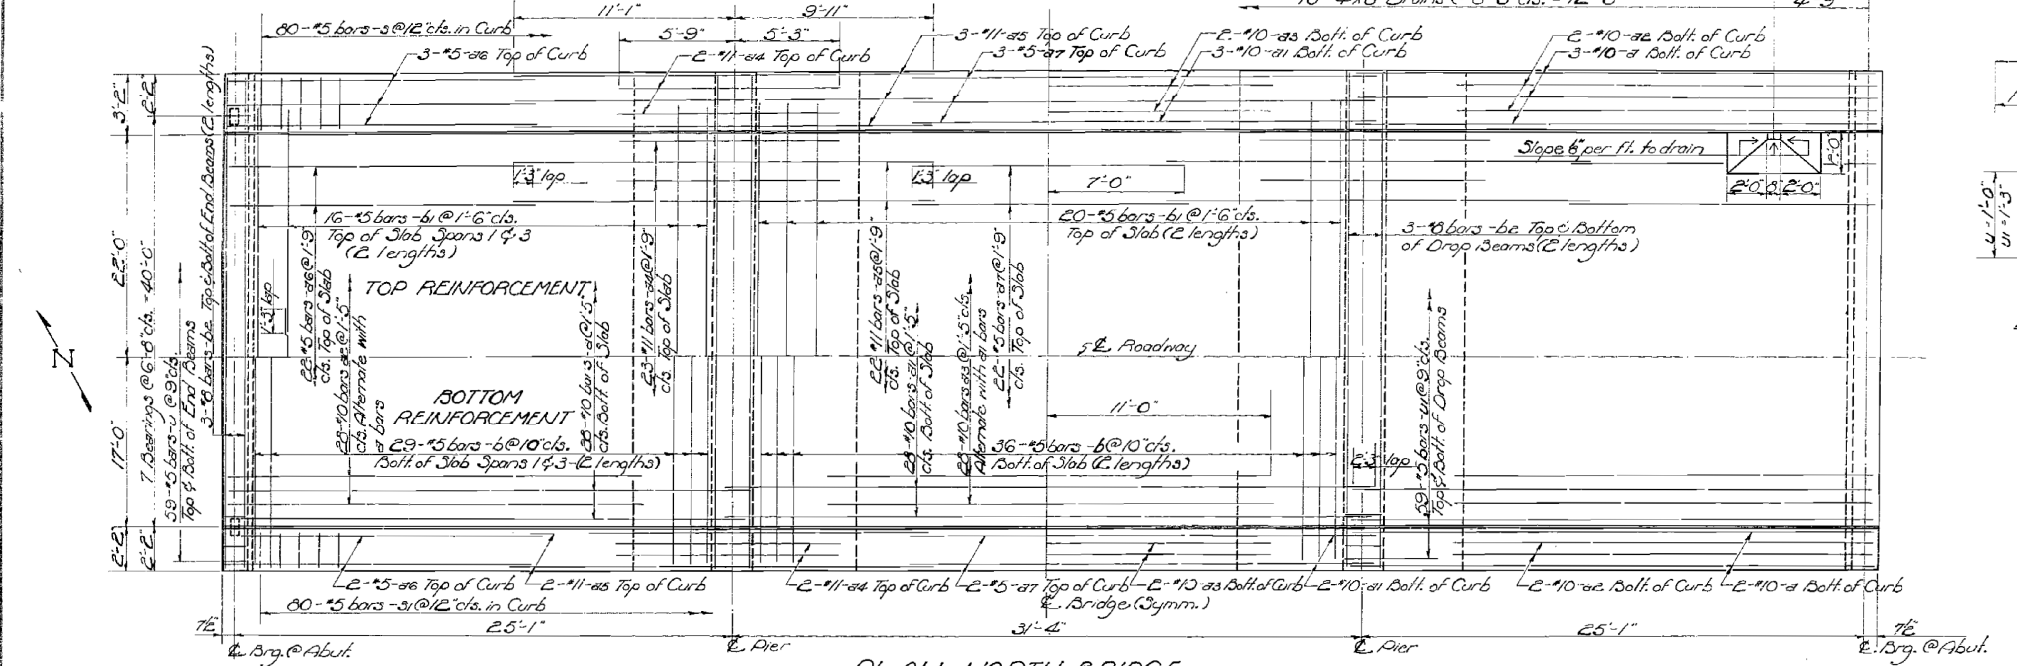 11'-1"
9'-11"
4'-9"
80-#5 bars-s@12"cls. in Curb
5'-9"
5'-3"
3-#5-a6 Top of Curb
2-#11-a4 Top of Curb
3-#11-a5 Top of Curb
3-#5-a7 Top of Curb
2-#10-a3 Bott. of Curb
3-#10-a1 Bott. of Curb
2-#10-a2 Bott. of Curb
3-#10-a Bott. of Curb
3'-2"
2'-2"
22'-0"
17'-0"
2'-2"
2'-2"
7 Bearings @ 6'-8"cls. = 40'-0"
59-#5 bars-u @ 9"cls.
Top & Bott. of End Beams
3-#8 bars-be Top & Bott. of End Beams (2 lengths)
1'-3" lap
1'-3" lap
7'-0"
Slope per ft. to drain
2'-0" 8" 2'-0"
2'-0"
16-#5 bars-b1 @ 1'-6"cls.
Top of Slab Spans 1 & 3
(2 lengths)
20-#5 bars-b1 @ 1'-6"cls.
Top of Slab (2 lengths)
3-#8 bars-be Top & Bottom
of Drop Beams (2 lengths)
TOP REINFORCEMENT
1'-3" lap
23-#5 bars-a6@1'-9"
cls. Top of Slab
28-#10 bars a2@1'-5"
cls. Alternate with
a bars
#10 bars-a@1'-5"
cls. Bott. of Slab
23-#11 bars-a4@1'-9"
cls. Top of Slab
22-#11 bars-a5@1'-9"
cls. Top of Slab
28-#10 bars-a1@1'-5"
cls. Bott. of Slab
28-#10 bars-a3@1'-5"cls.
Alternate with a1 bars
22-#5 bars-a7@1'-9"
cls. Top of Slab
℄ Roadway
N
BOTTOM
REINFORCEMENT
11'-0"
29-#5 bars-b@10"cls.
Bott. of Slab Spans 1 & 3-(2 lengths)
36-#5 bars-b@10"cls.
Bott. of Slab (2 lengths)
2'-3" lap
59-#5 bars-u1@9"cls.
Top & Bott. of Drop Beams
u-1'-0"
u1-1'-3"
2-#5-a6 Top of Curb
2-#11-a5 Top of Curb
2-#11-a4 Top of Curb
2-#5-a7 Top of Curb
2-#10 a3 Bott. of Curb
2-#10-a1 Bott. of Curb
2-#10-a2 Bott. of Curb
2-#10-a Bott. of Curb
80-#5 bars-s1@12"cls. in Curb
℄ Bridge (Symm.)
7½"
25'-1"
31'-4"
25'-1"
7½"
℄ Brg. @ Abut.
℄ Pier
℄ Pier
℄ Brg. @ Abut.